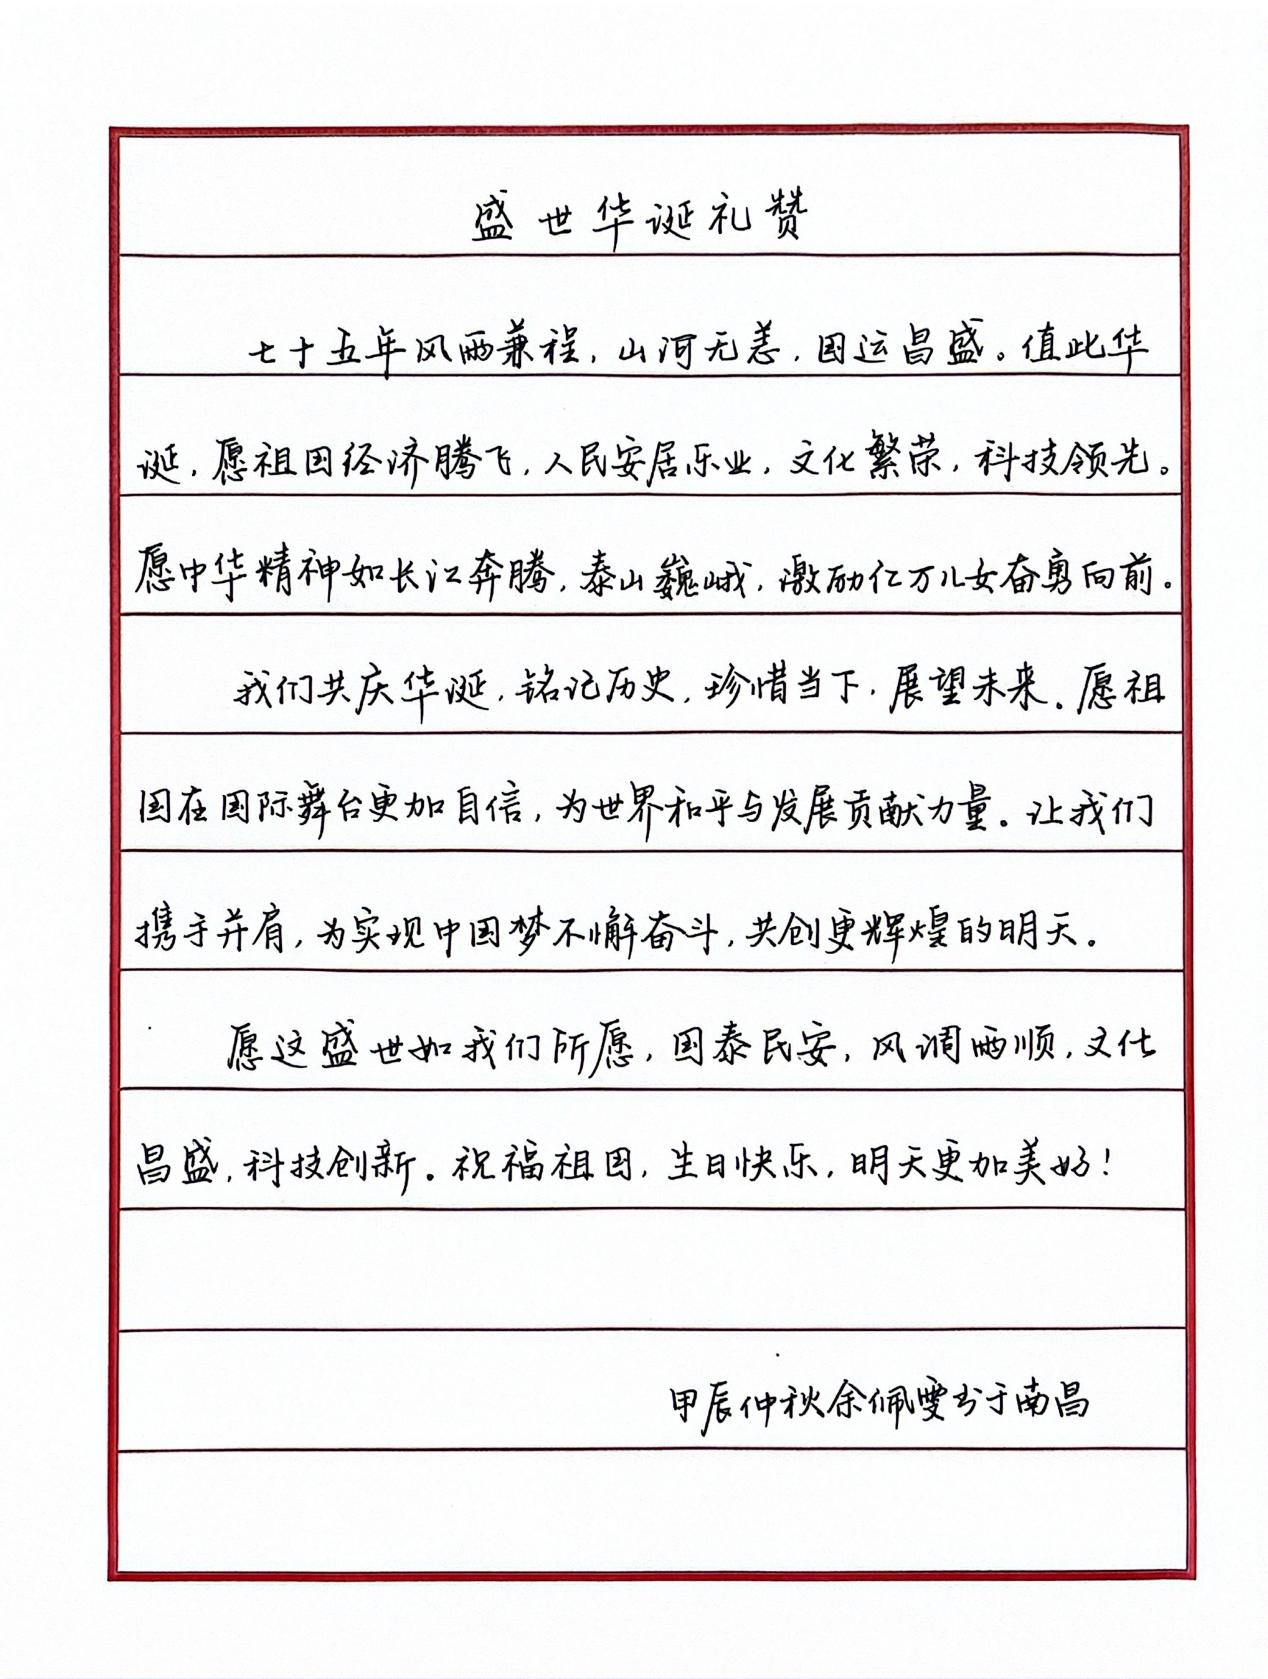 盛世华诞礼赞
七十五年风雨兼程，山河无恙，国运昌盛。值此华
诞，愿祖国经济腾飞，人民安居乐业，文化繁荣，科技领先。
愿中华精神如长江奔腾，泰山巍峨，激励亿万儿女奋勇向前。
我们共庆华诞，铭记历史，珍惜当下，展望未来。愿祖
国在国际舞台更加自信，为世界和平与发展贡献力量。让我们
携手并肩，为实现中国梦不懈奋斗，共创更辉煌的明天。
愿这盛世如我们所愿，国泰民安，风调雨顺，文化
昌盛，科技创新。祝福祖国，生日快乐，明天更加美好！
甲辰仲秋余佩雯书于南昌